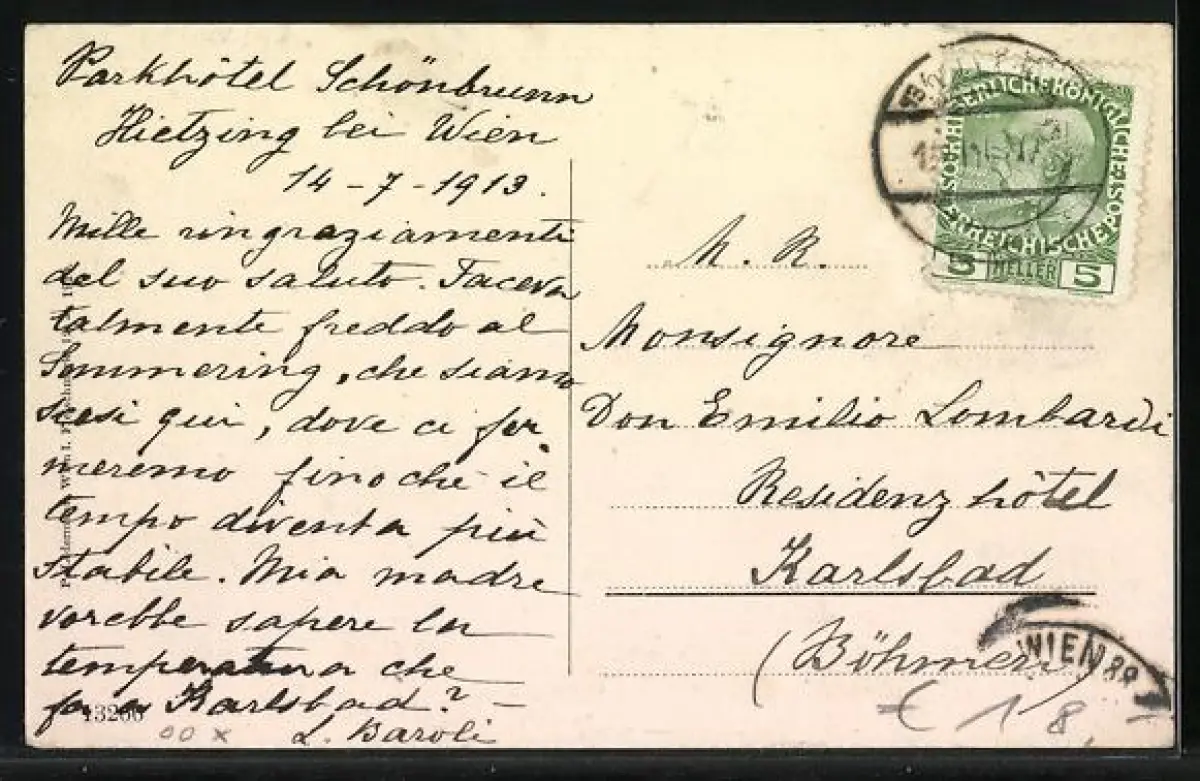 Parkhôtel Schönbrunn
Hietzing bei Wien
14-7-1913.
Mille ringraziamenti
del suo saluto. Faceva
talmente freddo al
Semmering, che siamo
scesi qui, dove ci fer-
meremo finochè il
tempo diventa più
stabile. Mia madre
vorebbe sapere la
temperatura che
fa a Karlsbad? -
L. Baroli
13266
00 x
M. R.
Monsignore
Don Emilio Lombardi
Residenzhôtel
Karlsbad
(Böhmen)
KAISERLICHE KÖNIGLICHE
ÖSTERREICHISCHE POST
5 HELLER 5
WIEN 89